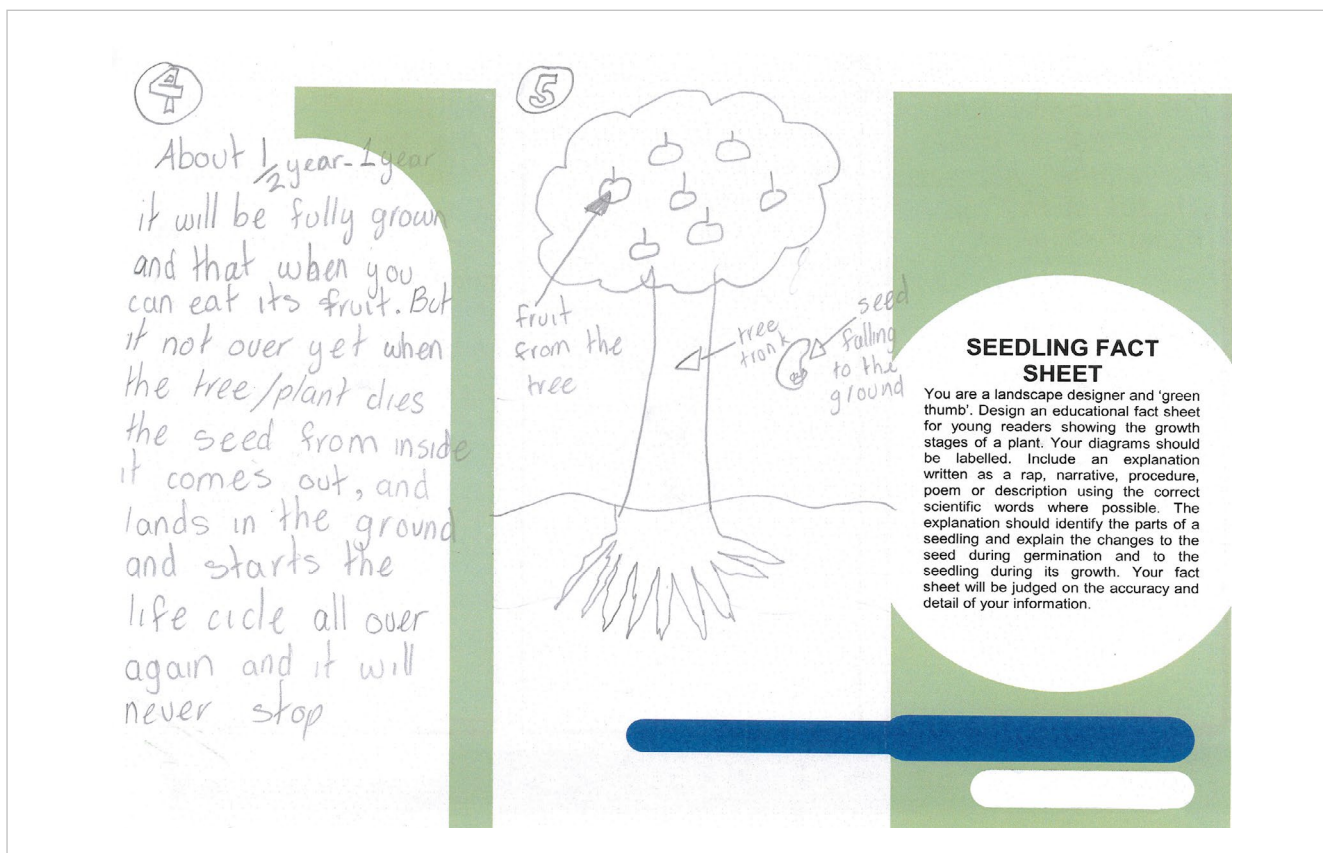 4
About 1/2 year - 1 year
it will be fully grown
and that when you
can eat its fruit. But
it not over yet when
the tree/plant dies
the seed from inside
it comes out, and
lands in the ground
and starts the
life cicle all over
again and it will
never stop
5
fruit
from the
tree
tree
tronk
seed
falling
to the
ground
SEEDLING FACT
SHEET
You are a landscape designer and ‘green
thumb’. Design an educational fact sheet
for young readers showing the growth
stages of a plant. Your diagrams should
be labelled. Include an explanation
written as a rap, narrative, procedure,
poem or description using the correct
scientific words where possible. The
explanation should identify the parts of a
seedling and explain the changes to the
seed during germination and to the
seedling during its growth. Your fact
sheet will be judged on the accuracy and
detail of your information.